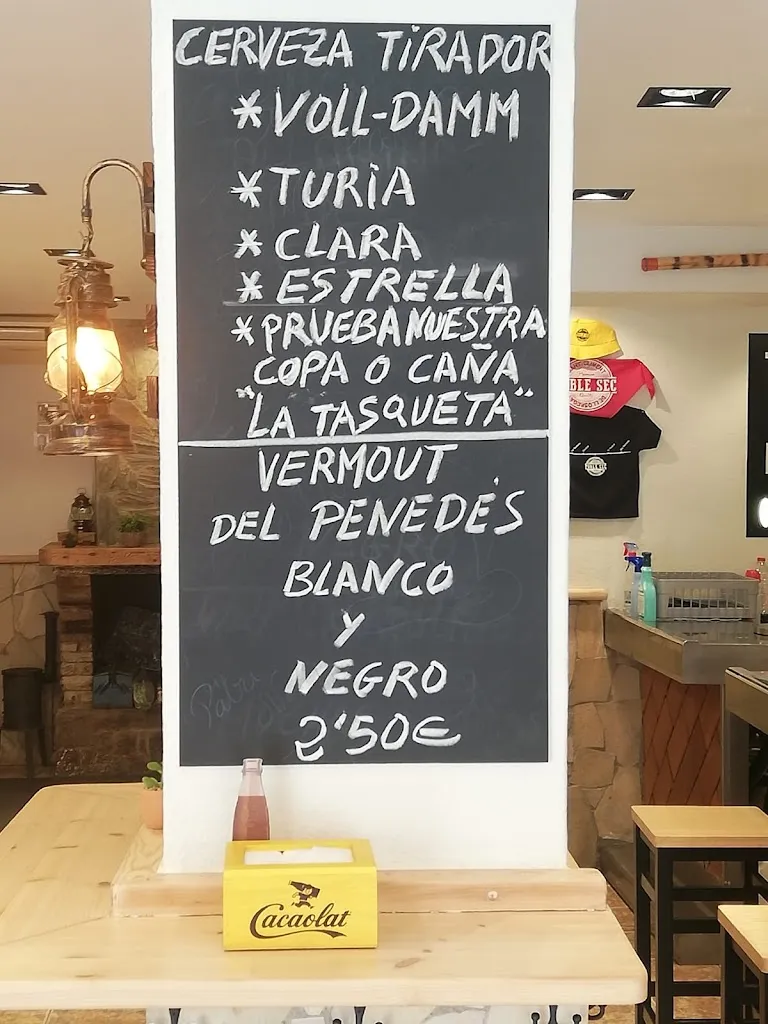 CERVEZA TIRADOR
*VOLL-DAMM
*TURIA
*CLARA
*ESTRELLA
*PRUEBA MUESTRA
COPA O CAÑA
"LA TASQUETA"
VERMOUT
DEL PENEDÉS
BLANCO
Y
NEGRO
2'50€
BLE SEC
Cacaolat